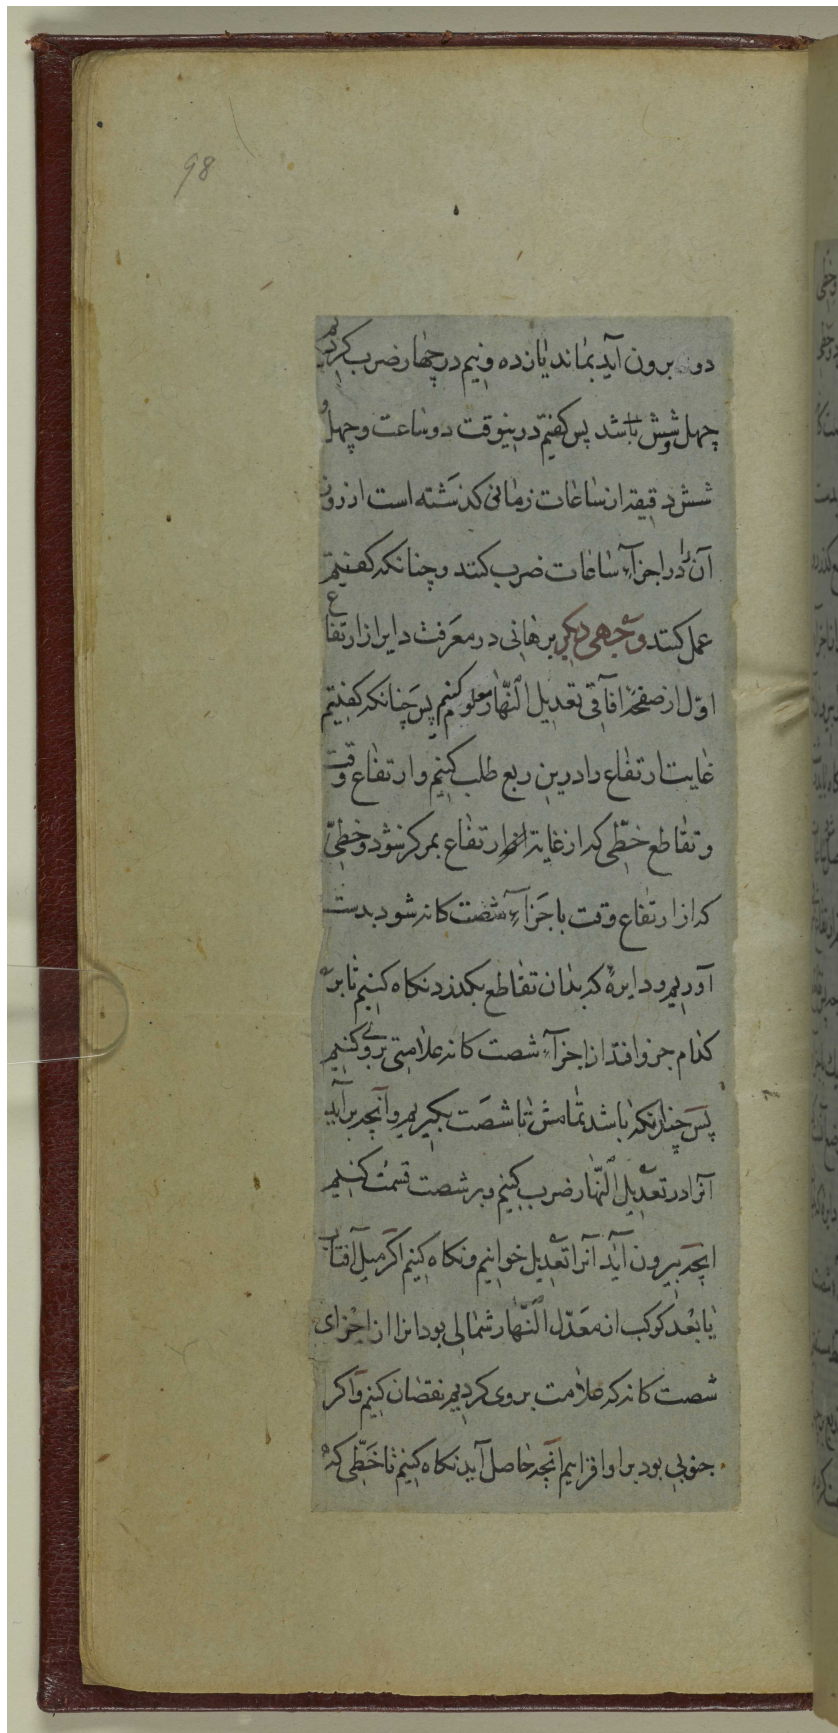 98
دو برون آید بماند یازده و نیم در چهار ضرب کردیم
چهل و شش باشد پس کفتیم درینوقت دو ساعت و چهل و
شش دقیقه از ساعات زمانی کذشته است از روز
آن را در اجزآء ساعات ضرب کنند و چنانکه کفتیم
عمل کنند وجهی دیکر برهانی در معرفت دایر از ارتفاع
اوّل از صفحهٔ آفاقی تعدیل النّهار معلوم کنیم پس چنانکه کفتیم
غایت ارتفاع را درین ربع طلب کنیم و ارتفاع وقت
و تقاطع خطّی که از غایة ارتفاع بمرکز شود و خطّی
که از ارتفاع وقت با جزآء شصت کانه شود بدست
آوریم و دایرهٔ که بدان تقاطع بکذرد نکاه کنیم تا بر
کدام جزو افتد از اجزآء شصت کانه علامتی بروی کنیم
پس چندانکه باشد تمامش تا شصت بکیریم و آنچه برآید
آنرا در تعدیل النّهار ضرب کنیم و بر شصت قسمت کنیم
انچه بیرون آید آنرا تعدیل خوانیم و نکاه کنیم اکر میل آفتاب
یا بعد کوکب از معدّل النّهار شمالی بود انرا از اجزای
شصت کانه که علامت بروی کردیم نقصان کنیم و اکر
جنوبی بود بر او افزاییم آنچه حاصل آید نکاه کنیم تا خطّی که